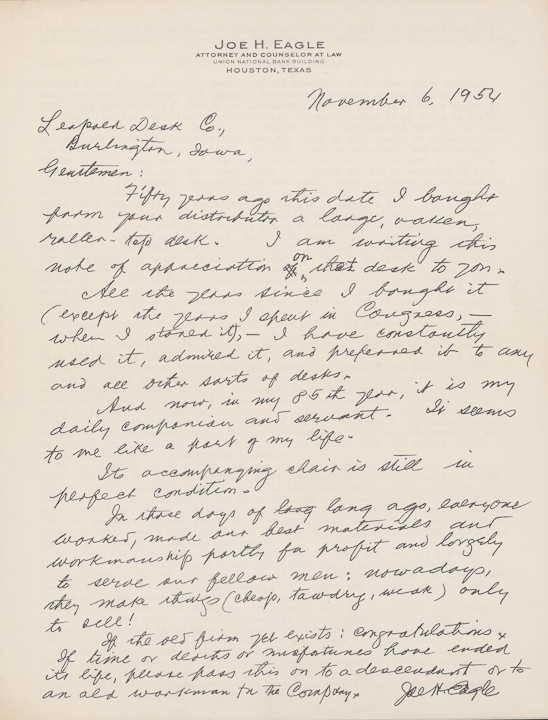 JOE H. EAGLE
ATTORNEY AND COUNSELOR AT LAW
UNION NATIONAL BANK BUILDING
HOUSTON, TEXAS
November 6, 1954
Leopold Desk Co.,
Burlington, Iowa,
Gentlemen:
Fifty years ago this date I bought
from your distributor a large, oaken,
roller-top desk. I am writing this
note of appreciation on that desk to you.
All the years since I bought it
(except the years I spent in Congress,—
when I stored it),— I have constantly
used it, admired it, and preferred it to any
and all other sorts of desks.
And now, in my 85th year, it is my
daily companion and servant. It seems
to me like a part of my life.
Its accompanying chair is still in
perfect condition.
In those days of long long ago, everyone
worked, made our best materials and
workmanship partly for profit and largely
to serve our fellow men: nowadays,
they make things (cheap, tawdry, weak) only
to sell!
If the old firm yet exists: congratulations.
If time or deaths or misfortunes have ended
its life, please pass this on to a descendant or to
an old workman in the Company.
Joe H. Eagle